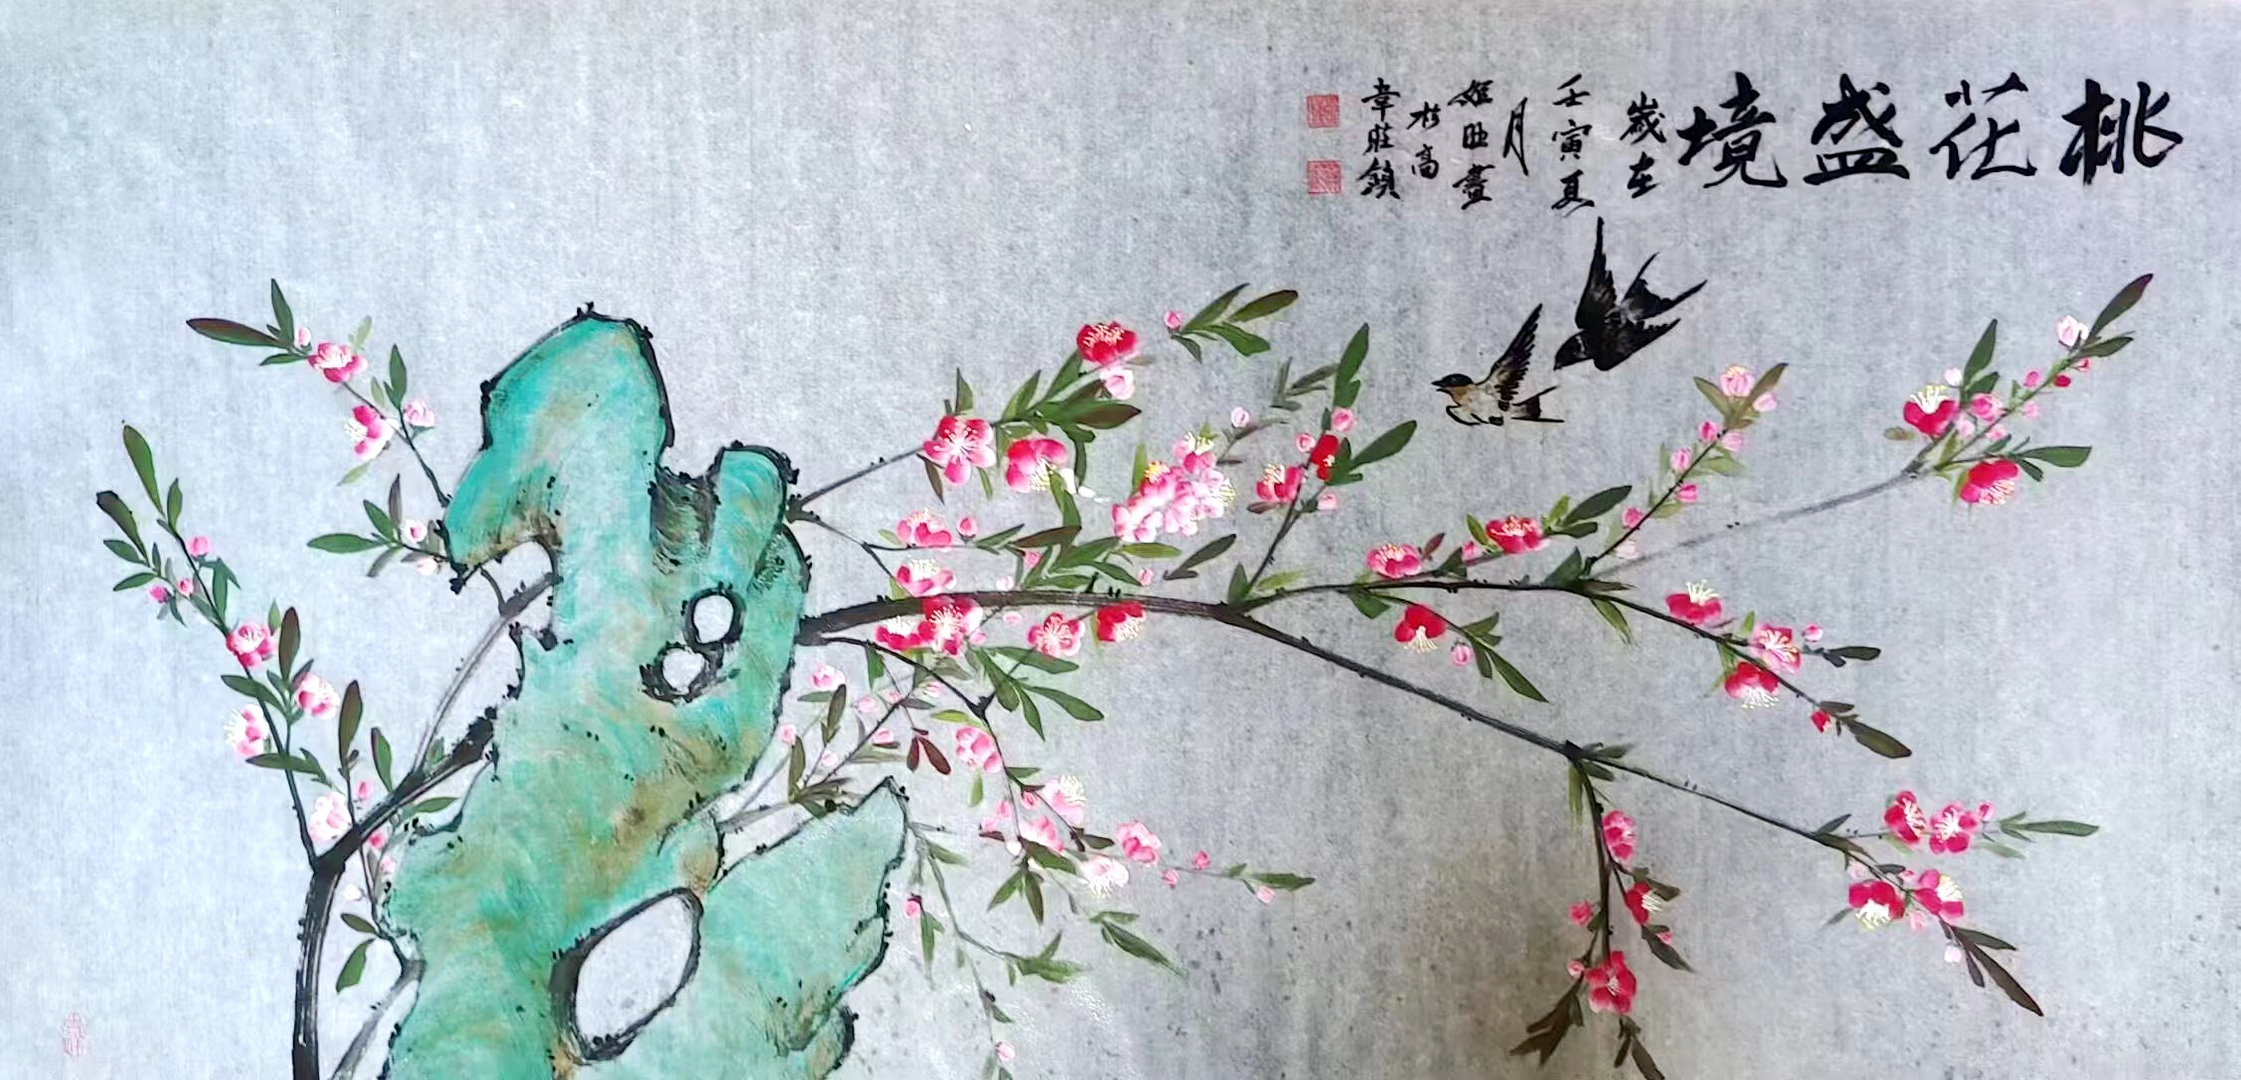 桃花盛境
歲在
壬寅夏
月
姬 畫
於高
韋莊鎮